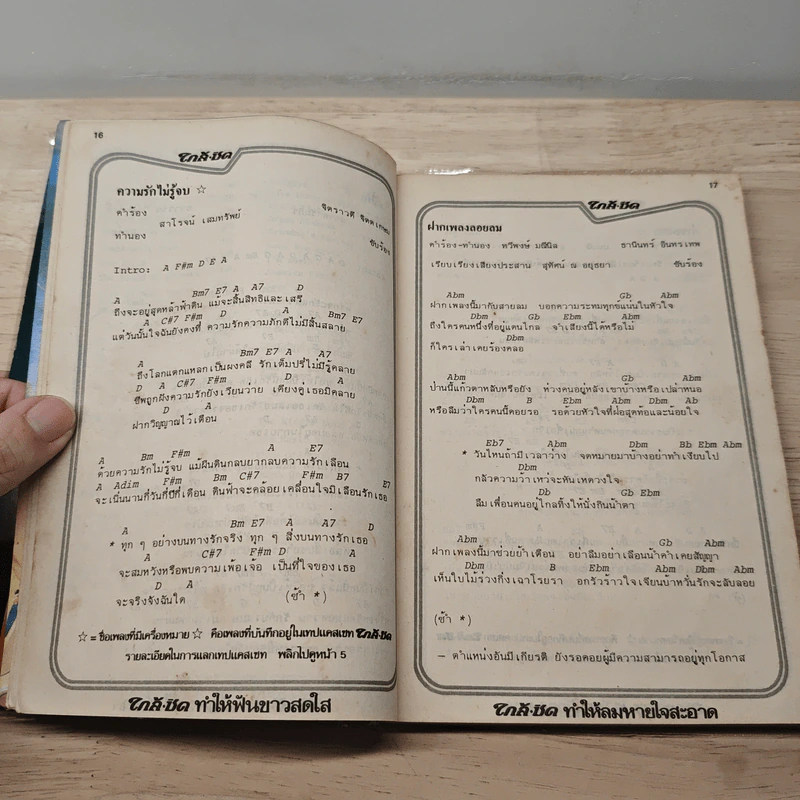 16
ใกล้·ชิด
ความรักไม่รู้จบ ☆
คำร้อง สาโรจน์ เสมทรัพย์
ทำนอง
ขับร้อง
Intro: A F#m D E A
A Bm7 E7 A A7 D
ถึงจะอยู่สุดหล้าฟ้าดิน แม้จะสิ้นสิทธิและเสรี
A C#7 F#m D A Bm7 E7
แต่วันนั้นใจฉันยังคงที่ ความรักความภักดีไม่มีสิ้นสลาย
A Bm7 E7 A A7
ถึงโลกแตกแหลกเป็นผงคลี รักเต็มปรี่ไม่มีรู้คลาย
D A C#7 F#m D A
ชีพถูกฝังความรักยังเวียนว่าย เคียงคู่เธอมิคลาย
D A
ฝากวิญญาณไว้เตือน
A Bm F#m A E7
ด้วยความรักไม่รู้จบ แม้ผืนดินกลบยากลบความรักเลือน
A Adim F#m Bm C#7 F#m B7 E7
จะเนิ่นนานกี่วันกี่ปีกี่เดือน ดินฟ้าจะคล้อย เคลื่อนใจมิเลือนรักเธอ
A Bm E7 A A7 D
* ทุก ๆ อย่างบนทางรักจริง ทุก ๆ สิ่งบนทางรักเธอ
A C#7 F#m D A
จะสมหวังหรือพบความเพ้อเจ้อ เป็นที่ใจของเธอ
D A
จะจริงจังฉันใด (ซ้ำ *)
☆ = ชื่อเพลงที่มีเครื่องหมาย ☆ คือเพลงที่บันทึกอยู่ในเทปแคสเซท ใกล้·ชิด
รายละเอียดในการแลกเทปแคสเซท พลิกไปดูหน้า 5
ใกล้·ชิด ทำให้ฟันขาวสดใส
17
ใกล้·ชิด
ฝากเพลงลอยลม
คำร้อง-ทำนอง ทวีพงษ์ มณีนิล ธานินทร์ อินทรเทพ
เรียบเรียงเสียงประสาน สุทัศน์ ณ อยุธยา ขับร้อง
Abm Gb Abm
ฝากเพลงนี้มากับสายลม บอกความระทมทุกข์แน่นในหัวใจ
Dbm Gb Ebm Abm
ถึงใครคนหนึ่งที่อยู่แดนไกล จำเสียงนี้ได้หรือไม่
Dbm
ก็ใครเล่าเคยร้องคลอ
Abm Gb Abm
ป่านนี้แก้วตาหลับหรือยัง ห่วงคนอยู่หลังเขาบ้างหรือเปล่าหนอ
Dbm B Ebm Abm Dbm Ab
หรือลืมว่าใครคนนี้คอยรอ รอด้วยหัวใจที่ฝ่อสุดท้อและน้อยใจ
Eb7 Abm Dbm Bb Ebm Abm
* วันไหนถ้ามีเวลาว่าง จดหมายมาบ้างอย่าทำเงียบไป
Dbm
กลัวความว้าเหว่จะหันเหดวงใจ
Db Gb Ebm
ลืมเพื่อนคนอยู่ไกลทิ้งให้นั่งกินน้ำตา
Abm Gb Abm
ฝากเพลงนี้มาช่วยย้ำเตือน อย่าลืมอย่าเลือนน้ำคำเคยสัญญา
Dbm B Ebm Abm Dbm Abm
เห็นใบไม้ร่วงกิ่งเฉาโรยรา อกรัวร้าวใจเจียนบ้าหวั่นรักจะลับลอย
(ซ้ำ *)
– ตำแหน่งอันมีเกียรติ ยังรอคอยผู้มีความสามารถอยู่ทุกโอกาส
ใกล้·ชิด ทำให้ลมหายใจสะอาด